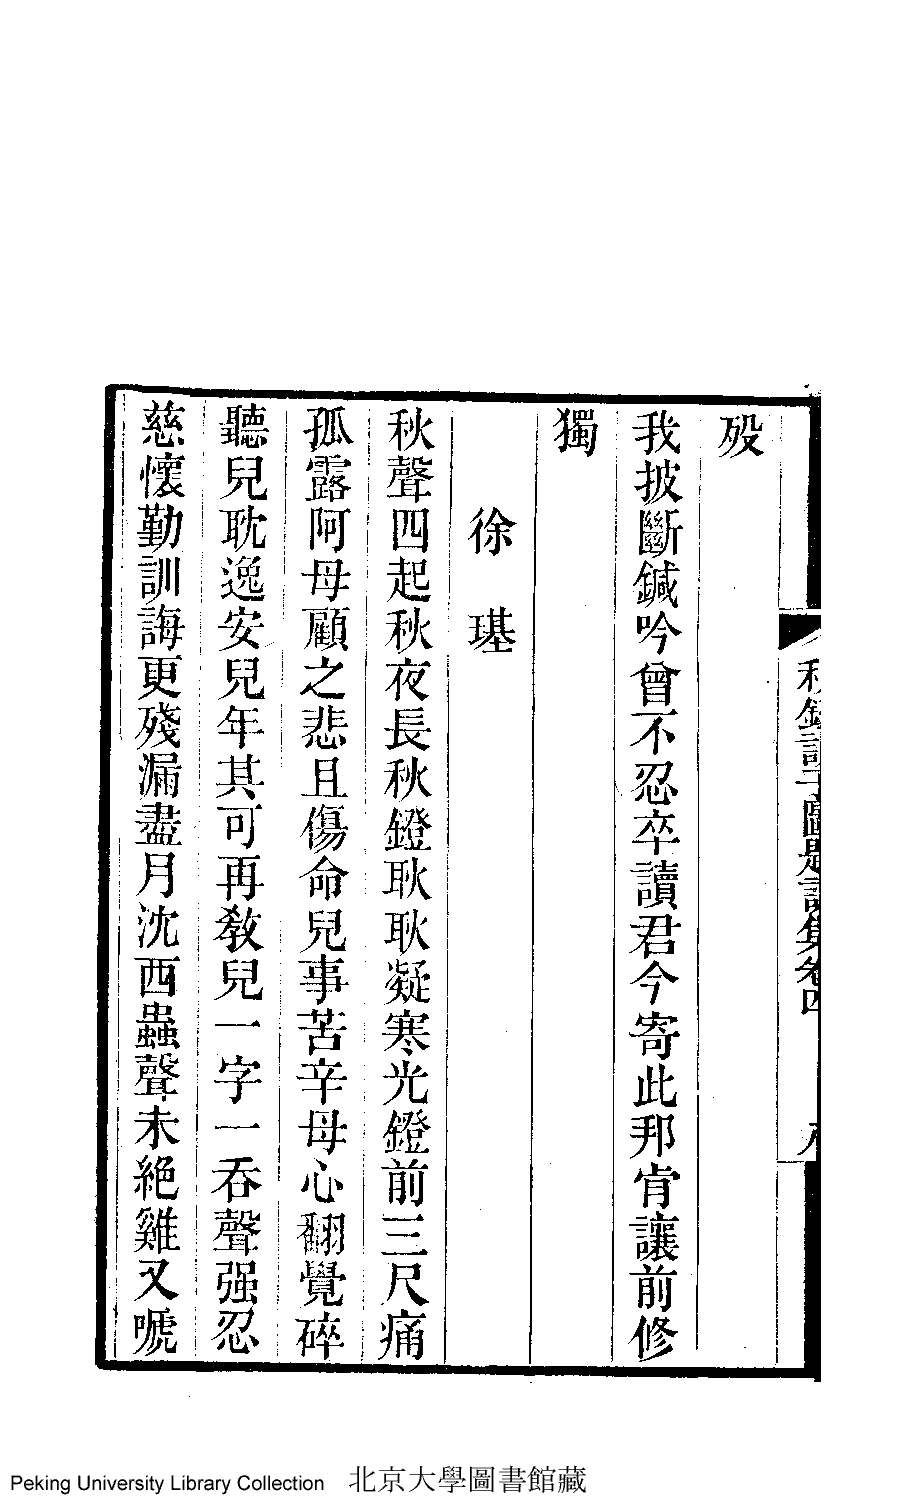 殁
我披斷鍼吟曾不忍卒讀君今寄此邦肯讓前修
獨
徐　璂
秋聲四起秋夜長秋鐙耿耿凝寒光鐙前三尺痛
孤露阿母顧之悲且傷命兒事苦辛母心翻覺碎
聽兒耽逸安兒年其可再敎兒一字一吞聲强忍
慈懷勤訓誨更殘漏盡月沈西蟲聲未絕雞又嗁
秋鐙課子圖題詞集卷四
Peking University Library Collection 北京大學圖書館藏